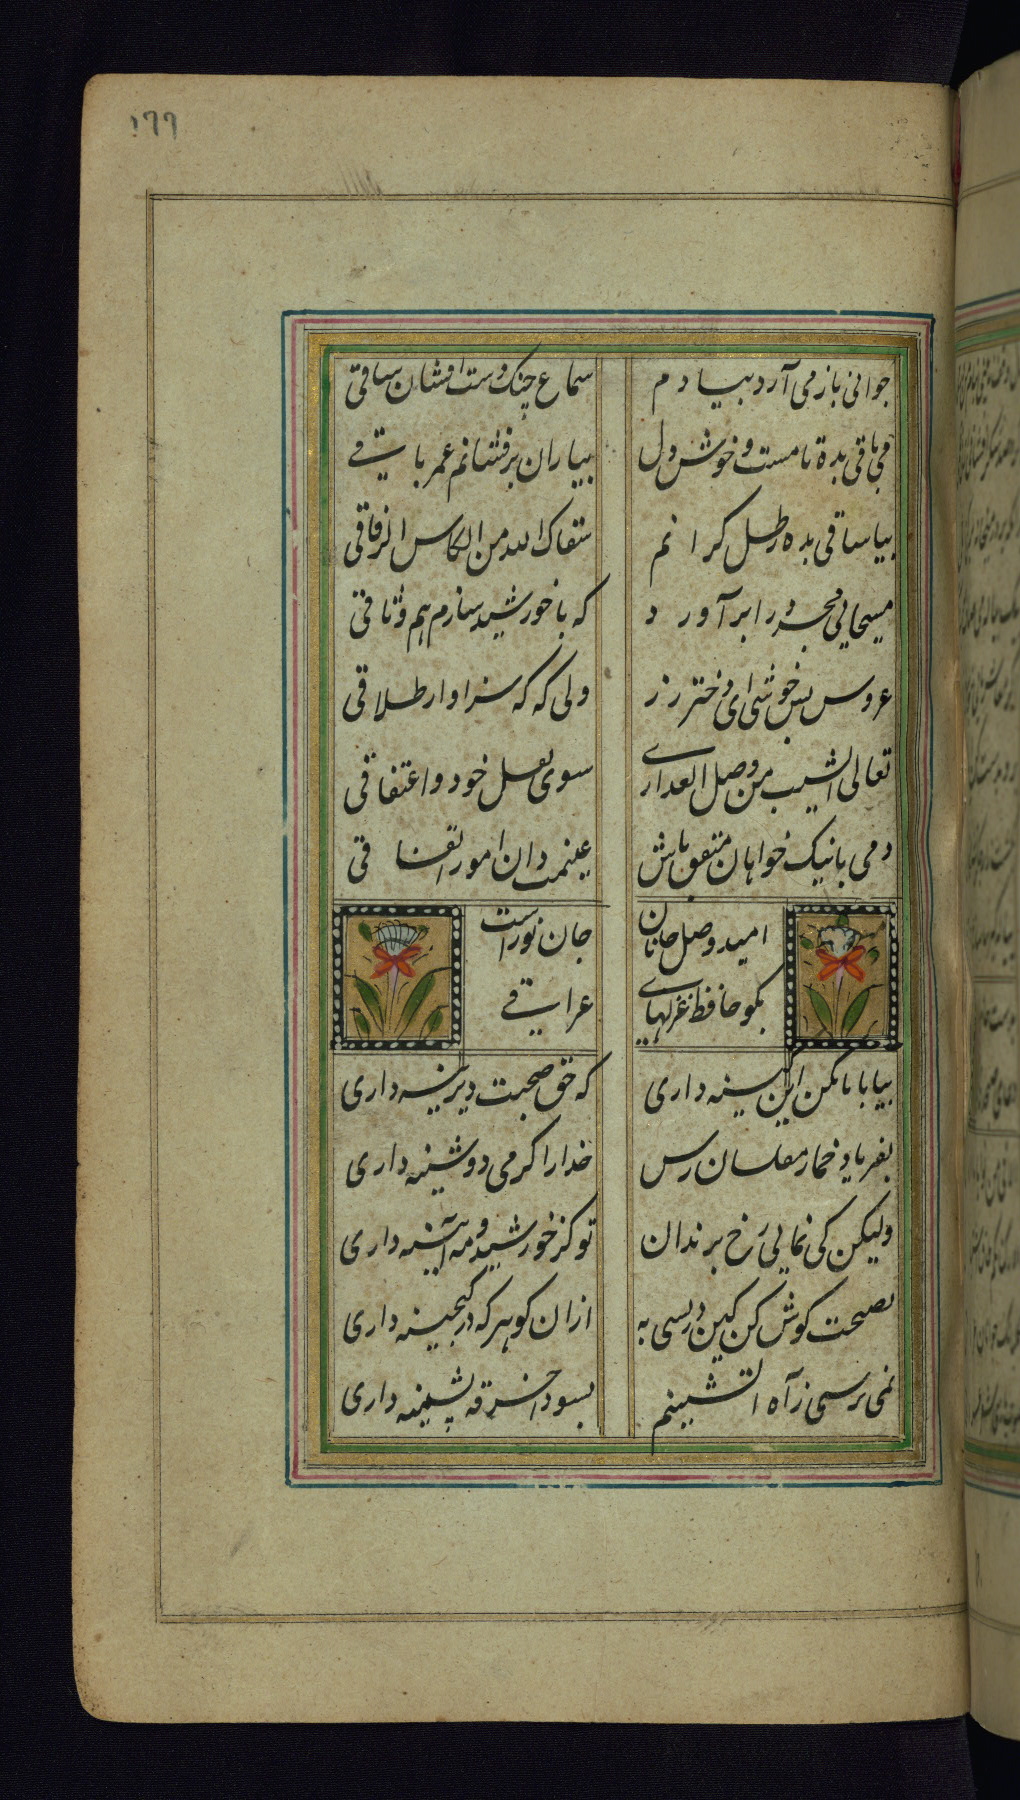 ۱۶۶
جوانی باز می آرد بیادم
سماع چنک و دست افشان ساقی
می باقی بده تا مست و خوش دل
بیاران بر فشانم عمر باقی
بیا ساقی بده رطل کرانم
سقاک الله من الکاس الزفاقی
مسیحای مجرد را بر آورد
که با خورشید سازم هم وثاقی
عروس بس خوشی ای دختر رز
ولی که که سزاوار طلاقی
سوی
دمی با نیک خواهان متفق باش
غنیمت دان امور اتفاقی
امید وصل جانان
جان نور است
بکو حافظ غزلهای
عراقی
بیا با ما مکن این کینه داری
که حق صحبت دیرینه داری
بفریاد خمار مفلسان رس
خدارا کر می دوشینه داری
ولیکن کی نمایی رخ برندان
تو کز خورشید و مه آیینه داری
نصیحت کوش کن کین در بسی به
ازان کوهر که در کنجینه داری
نمی ترسی ز آه اتشینم
خرقه پشمینه داری